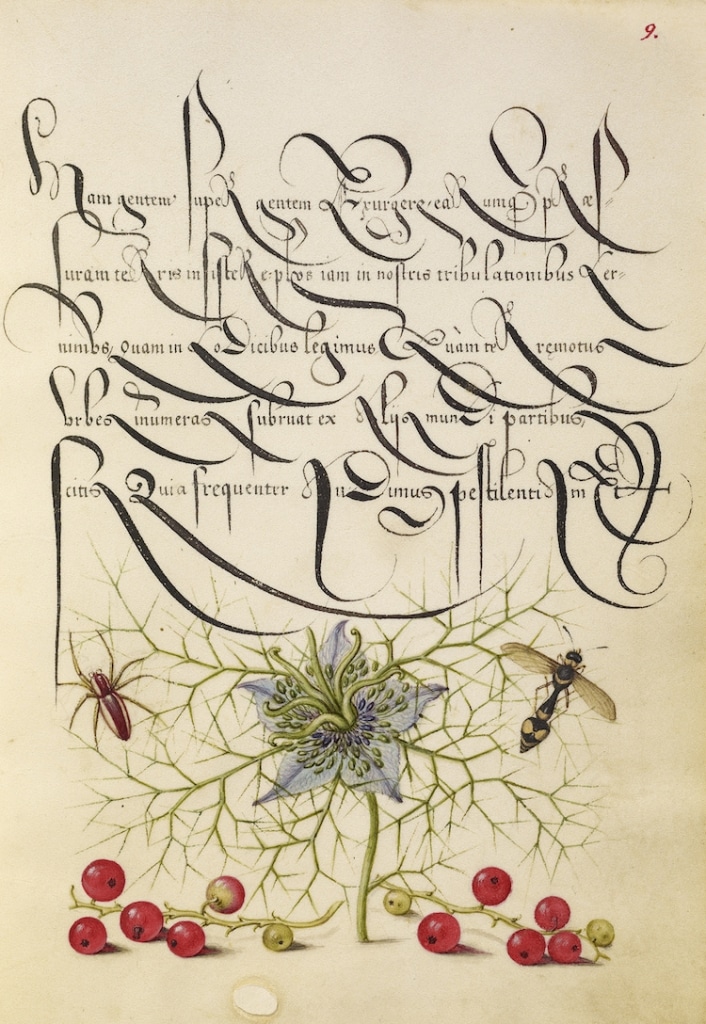 9.
Nam gentem super gentem Exurgere, earumq; præs
suram terris insistere plus iam in nostris tribulationibus Cer=
nimus, Quam in Codicibus legimus, Quàm terræmotus
Urbes inumeras subruat ex alijs mundi partibus,
scitis Quia frequenter audiuimus, pestilentiam Et